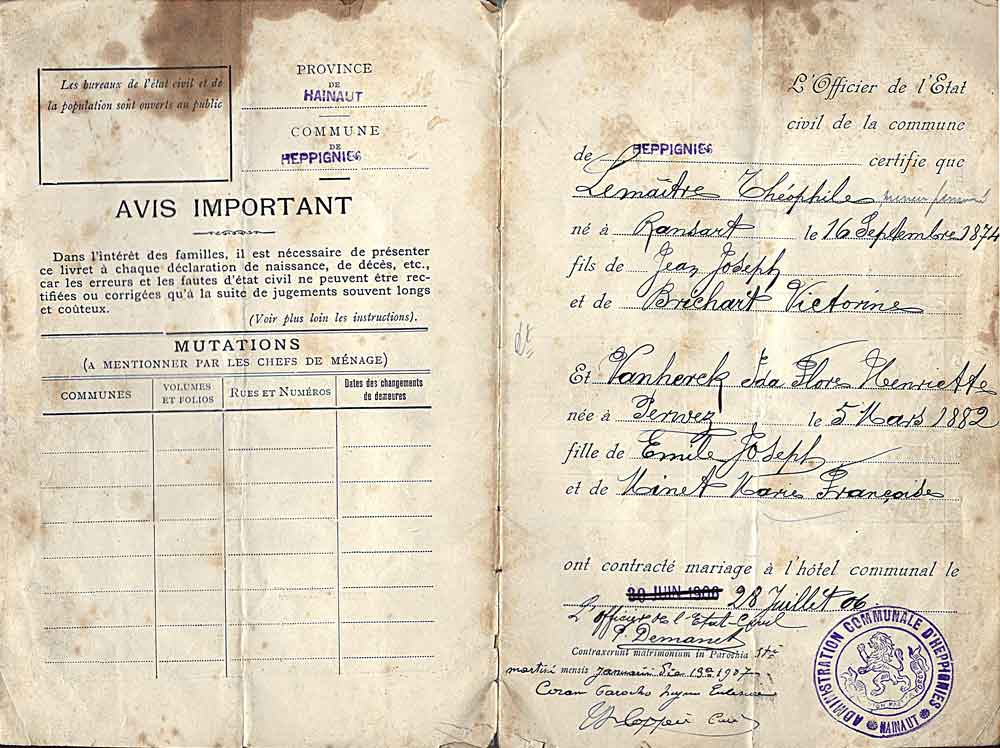 Les bureaux de l'état civil et de
la population sont ouverts au public
PROVINCE
DE
HAINAUT
COMMUNE
DE
HEPPIGNIES
AVIS IMPORTANT
Dans l'intérêt des familles, il est nécessaire de présenter
ce livret à chaque déclaration de naissance, de décès, etc.,
car les erreurs et les fautes d'état civil ne peuvent être rec-
tifiées ou corrigées qu'à la suite de jugements souvent longs
et coûteux.
(Voir plus loin les instructions).
MUTATIONS
(A MENTIONNER PAR LES CHEFS DE MÉNAGE)
COMMUNES
VOLUMES
ET FOLIOS
RUES ET NUMÉROS
Dates des changements
de demeures
L'Officier de l'Etat
civil de la commune
de HEPPIGNIES certifie que
Lemaître Théophile
né à Ransart le 16 Septembre 1874
fils de Jean Joseph
et de Brichart Victorine
Et Vanherck Ida Flore Henriette
née à Perwez le 5 Mars 1882
fille de Emile Joseph
et de Minet Marie Françoise
ont contracté mariage à l'hôtel communal le
30 JUIN 1906 28 Juillet 06
L'officier de l'Etat-Civil
Demanet
Contraxerunt matrimonium in Parochia
mensis januarii die 19a 1907
Coram
Curé
ADMINISTRATION COMMUNALE D'HEPPIGNIES
HAINAUT